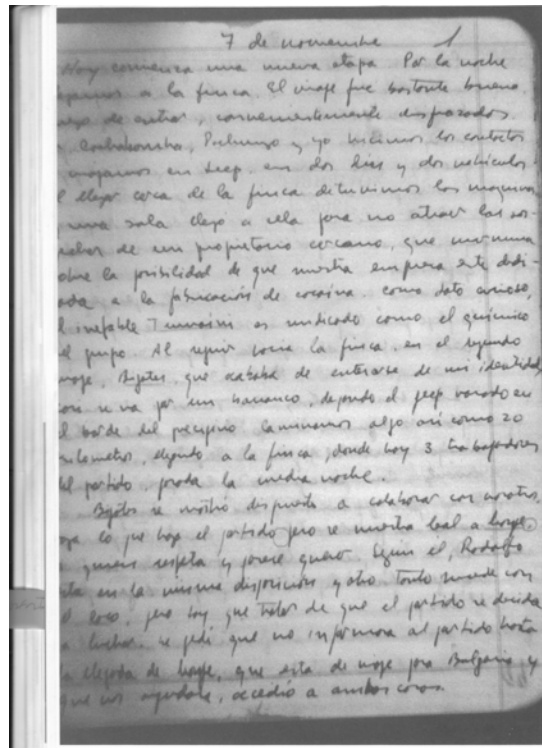 7 de noviembre 1
Hoy comienza una nueva etapa. Por la noche
egamos a la finca. El viaje fue bastante bueno.
uego de entrar, convenientemente disfrazados,
Cochabamba, Pachungo y yo hicimos los contactos
viajamos en jeep, en dos días y dos vehículos.
l llegar cerca de la finca detuvimos las maquinas
una sola llegó a ella para no atraer las sos-
pechas de un propietario cercano, que murmura
obre la posibilidad de que nuestra empresa esté dedi-
cada a la fabricación de cocaína. como dato curioso,
l inefable Tumaini es indicado como el químico
el grupo. Al seguir hacia la finca, en el segundo
viaje, Bigotes, que acababa de enterarse de mi identidad,
casi se va por un barranco, dejando el jeep varado en
l borde del precipicio. Caminamos algo así como 20
kilometros, llegando a la finca, donde hay 3 trabajadores
del partido, pasada la media noche.
Bigotes se mostró dispuesto a colaborar con nosotros,
haga lo que haga el partido pero se muestra leal a Monje,
a quien respeta y parece querer. Según él, Rodolfo
sta en la misma disposición y otro tanto sucede con
el coco, pero hay que tratar de que el partido se decida
a luchar. Le pedí que no informara al partido hasta
la llegada de Monje, que está de viaje para Bulgaria y
que nos ayudara, accedió a ambas cosas.